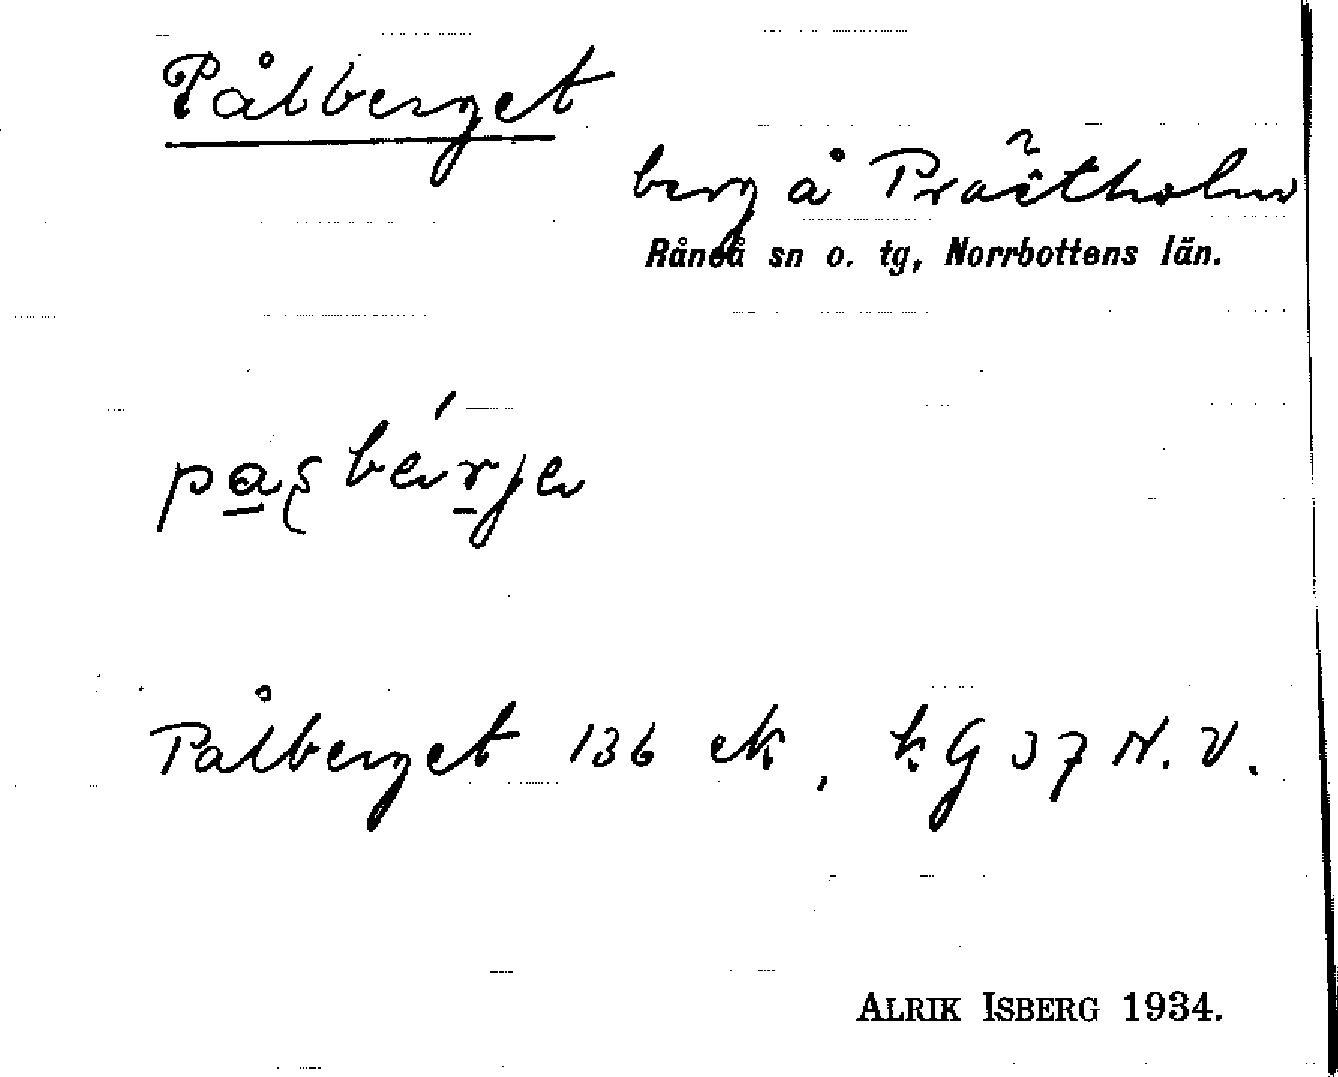 Pålberget
berg å Prästholm
Råneå sn o. tg, Norrbottens län.
Pålberget 136 ek, kG 37 N.V.
ALRIK ISBERG 1934.